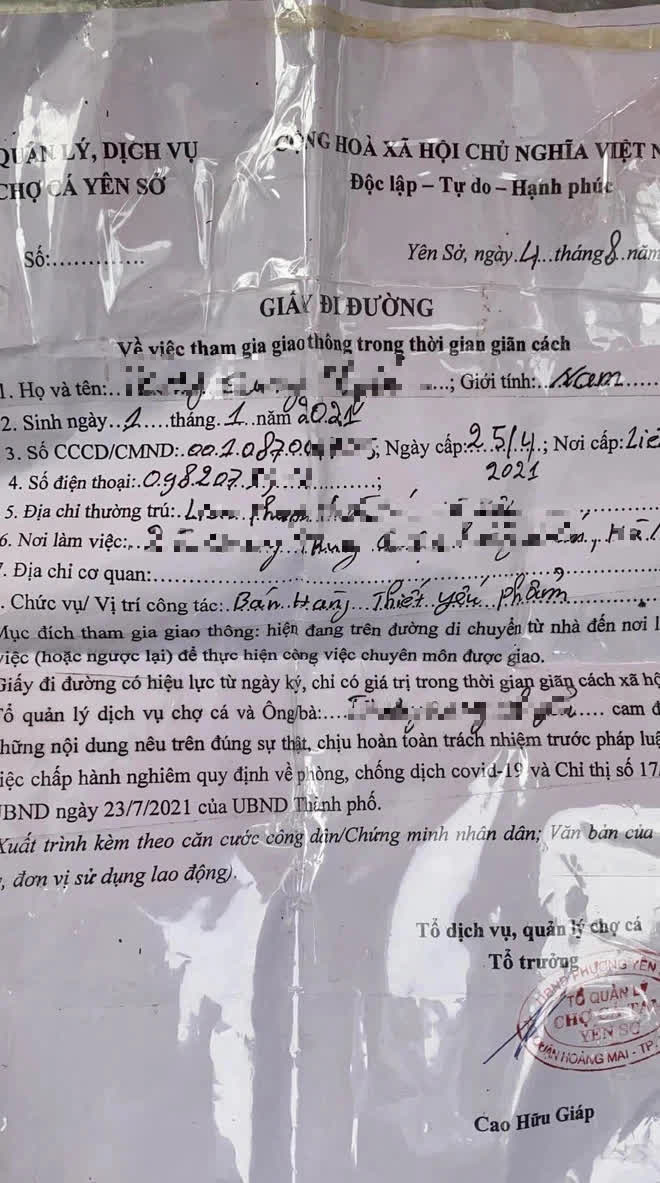 QUẢN LÝ, DỊCH VỤ
CHỢ CÁ YÊN SỞ
CỘNG HOÀ XÃ HỘI CHỦ NGHĨA VIỆT N
Độc lập – Tự do – Hạnh phúc
Số:.............
Yên Sở, ngày 4 tháng 8 năm
GIẤY ĐI ĐƯỜNG
Về việc tham gia giao thông trong thời gian giãn cách
1. Họ và tên: ; Giới tính: Nam
2. Sinh ngày 1 tháng 1 năm 2021
3. Số CCCD/CMND: 001.0870 ; Ngày cấp: 25/4 ; Nơi cấp:
2021
4. Số điện thoại: 098207 ;
5. Địa chỉ thường trú:
6. Nơi làm việc:
7. Địa chỉ cơ quan:
. Chức vụ/ Vị trí công tác: Bán Hàng Thiết yếu phẩm
Mục đích tham gia giao thông: hiện đang trên đường di chuyển từ nhà đến nơi l
việc (hoặc ngược lại) để thực hiện công việc chuyên môn được giao.
Giấy đi đường có hiệu lực từ ngày ký, chỉ có giá trị trong thời gian giãn cách xã hộ
Tổ quản lý dịch vụ chợ cá và Ông/bà: cam đ
những nội dung nêu trên đúng sự thật, chịu hoàn toàn trách nhiệm trước pháp luậ
việc chấp hành nghiêm quy định về phòng, chống dịch covid-19 và Chỉ thị số 17/
UBND ngày 23/7/2021 của UBND Thành phố.
Xuất trình kèm theo căn cước công dân/Chứng minh nhân dân; Văn bản của
, đơn vị sử dụng lao động).
Tổ dịch vụ, quản lý chợ cá
Tổ trưởng
UBND PHƯỜNG YÊN
TỔ QUẢN LÝ
CHỢ CÁ
YÊN SỞ
QUẬN HOÀNG MAI - TP.
Cao Hữu Giáp